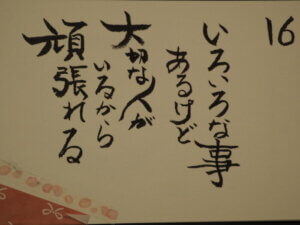 16
いろいろな事
あるけど
大切な人が
いるから
頑張れる